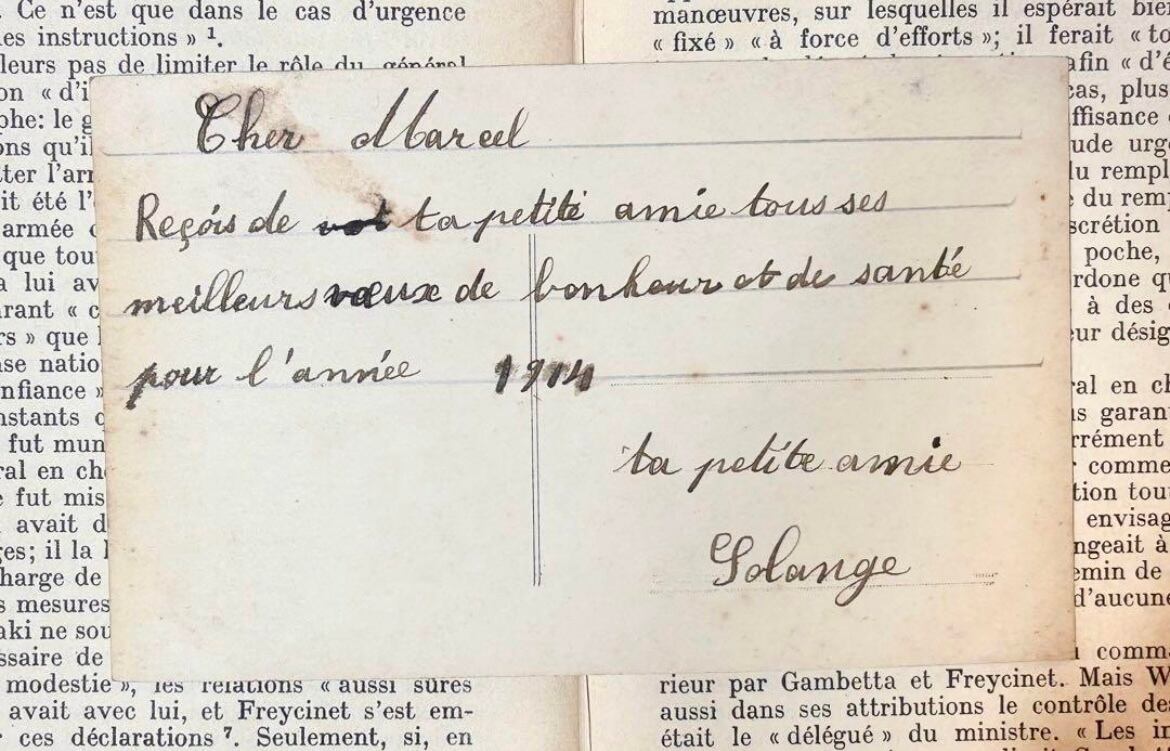 Ce n'est que dans le cas d'urgence
es instructions » ¹.
leurs pas de limiter le rôle du général
on « d'i
phe: le g
ons qu'il
tter l'arr
it été l'
armée
que tou
a lui av
rant « c
rs » que
se natio
nfiance »
nstants
fut mun
ral en ch
fut mis
avait d
ges; il la
harge de
s mesures
aki ne sou
ssaire de
modestie », les relations « aussi sûres
avait avec lui, et Freycinet s'est em-
ces déclarations ⁷. Seulement, si, en
Cher Marcel
Reçois de ta petite amie tous ses
meilleurs vœux de bonheur et de santé
pour l'année 1914
ta petite amie
Solange
manœuvres, sur lesquelles il espérait bien
« fixé » « à force d'efforts »; il ferait « to
afin « d'é
cas, plus
ffisance
ude urg
u rempl
du rem
scrétion
poche,
rdone qu
à des
eur désig
ral en ch
s garan
rrément
comme
tion tou
envisag
ngeait à
emin de
d'aucune
comma
rieur par Gambetta et Freycinet. Mais W
aussi dans ses attributions le contrôle des
était le « délégué » du ministre. « Les in